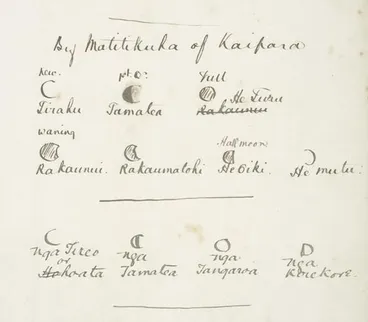 By Matitikuha of Kaipara
new. 1st Qr. Full
Tirahu Tamatea Rakaunui He Turu
waning Half moon
Rakaunui. Rakaumatohi He Oiki He mutu.
nga Tireo nga nga nga
or
Hohoata Tamatea Tangaroa Korekore.